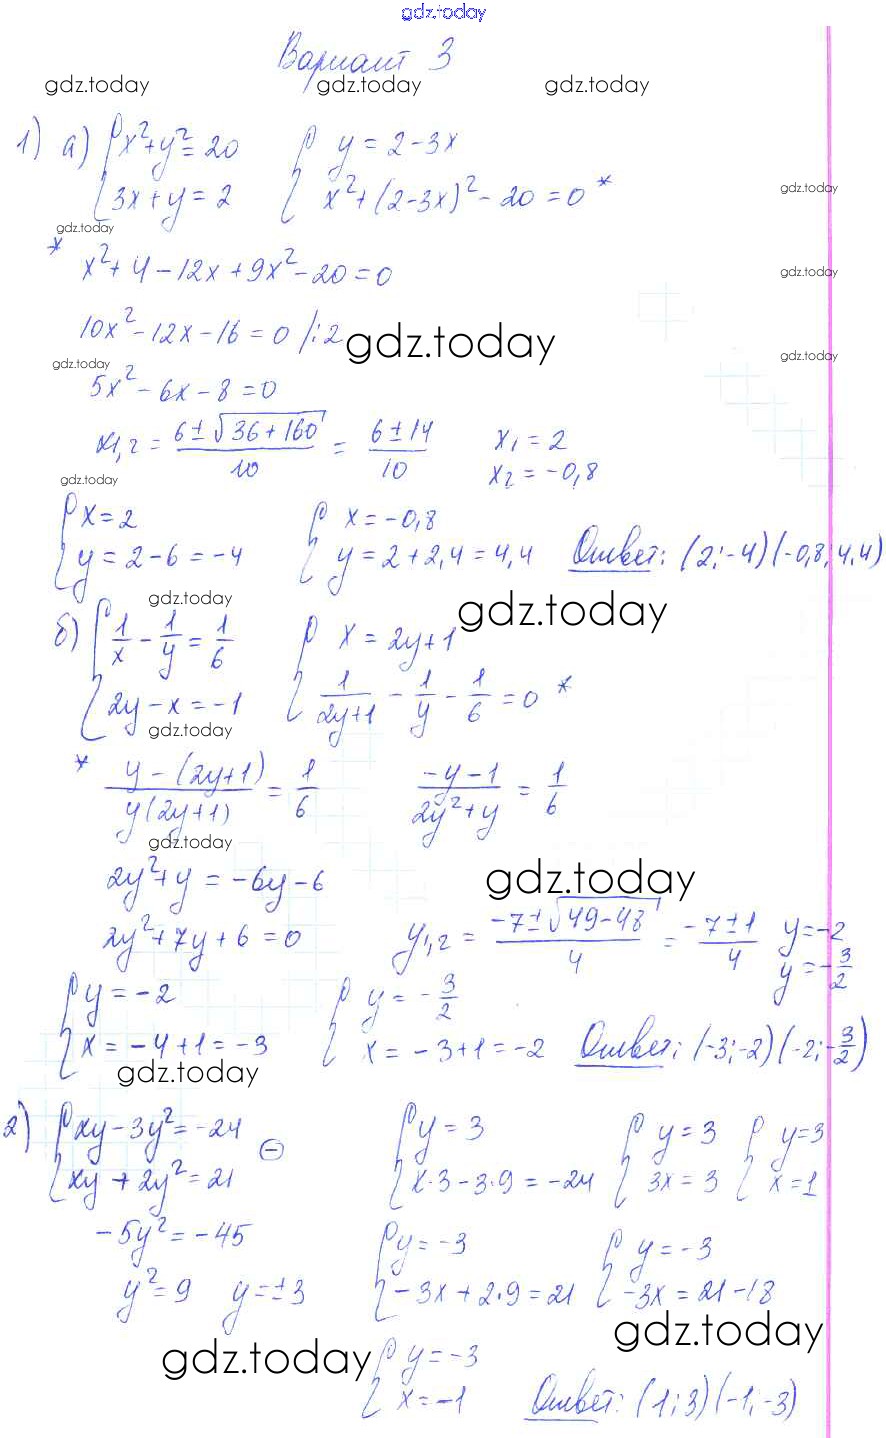 gdz.today
Вариант 3
gdz.today gdz.today gdz.today
1) а) { x²+y²=20 { y=2-3x
3x+y=2 x²+(2-3x)²-20=0 *
gdz.today
gdz.today
* x²+4-12x+9x²-20=0
gdz.today
10x²-12x-16=0 /:2
gdz.today
gdz.today
gdz.today
5x²-6x-8=0
x1,2 = (6±√(36+160))/10 = (6±14)/10 x₁=2
x₂=-0,8
gdz.today
{ x=2 { x=-0,8
y=2-6=-4 y=2+2,4=4,4 Ответ: (2;-4)(-0,8;4,4)
gdz.today gdz.today
б) { 1/x - 1/y = 1/6 { x=2y+1
2y-x=-1 1/(2y+1) - 1/y - 1/6 = 0 *
gdz.today
* (y-(2y+1))/(y(2y+1)) = 1/6 (-y-1)/(2y²+y) = 1/6
gdz.today
2y²+y=-6y-6
gdz.today
2y²+7y+6=0 y1,2 = (-7±√(49-48))/4 = (-7±1)/4 y=-2
y=-3/2
{ y=-2 { y=-3/2
x=-4+1=-3 x=-3+1=-2 Ответ: (-3;-2)(-2;-3/2)
gdz.today
2) { xy-3y²=-24 ⊖ { y=3 { y=3 { y=3
xy+2y²=21 x·3-3·9=-24 3x=3 x=1
-5y²=-45 { y=-3 { y=-3
y²=9 y=±3 -3x+2·9=21 -3x=21-18
gdz.today
gdz.today
{ y=-3
x=-1 Ответ: (1;3)(-1;-3)